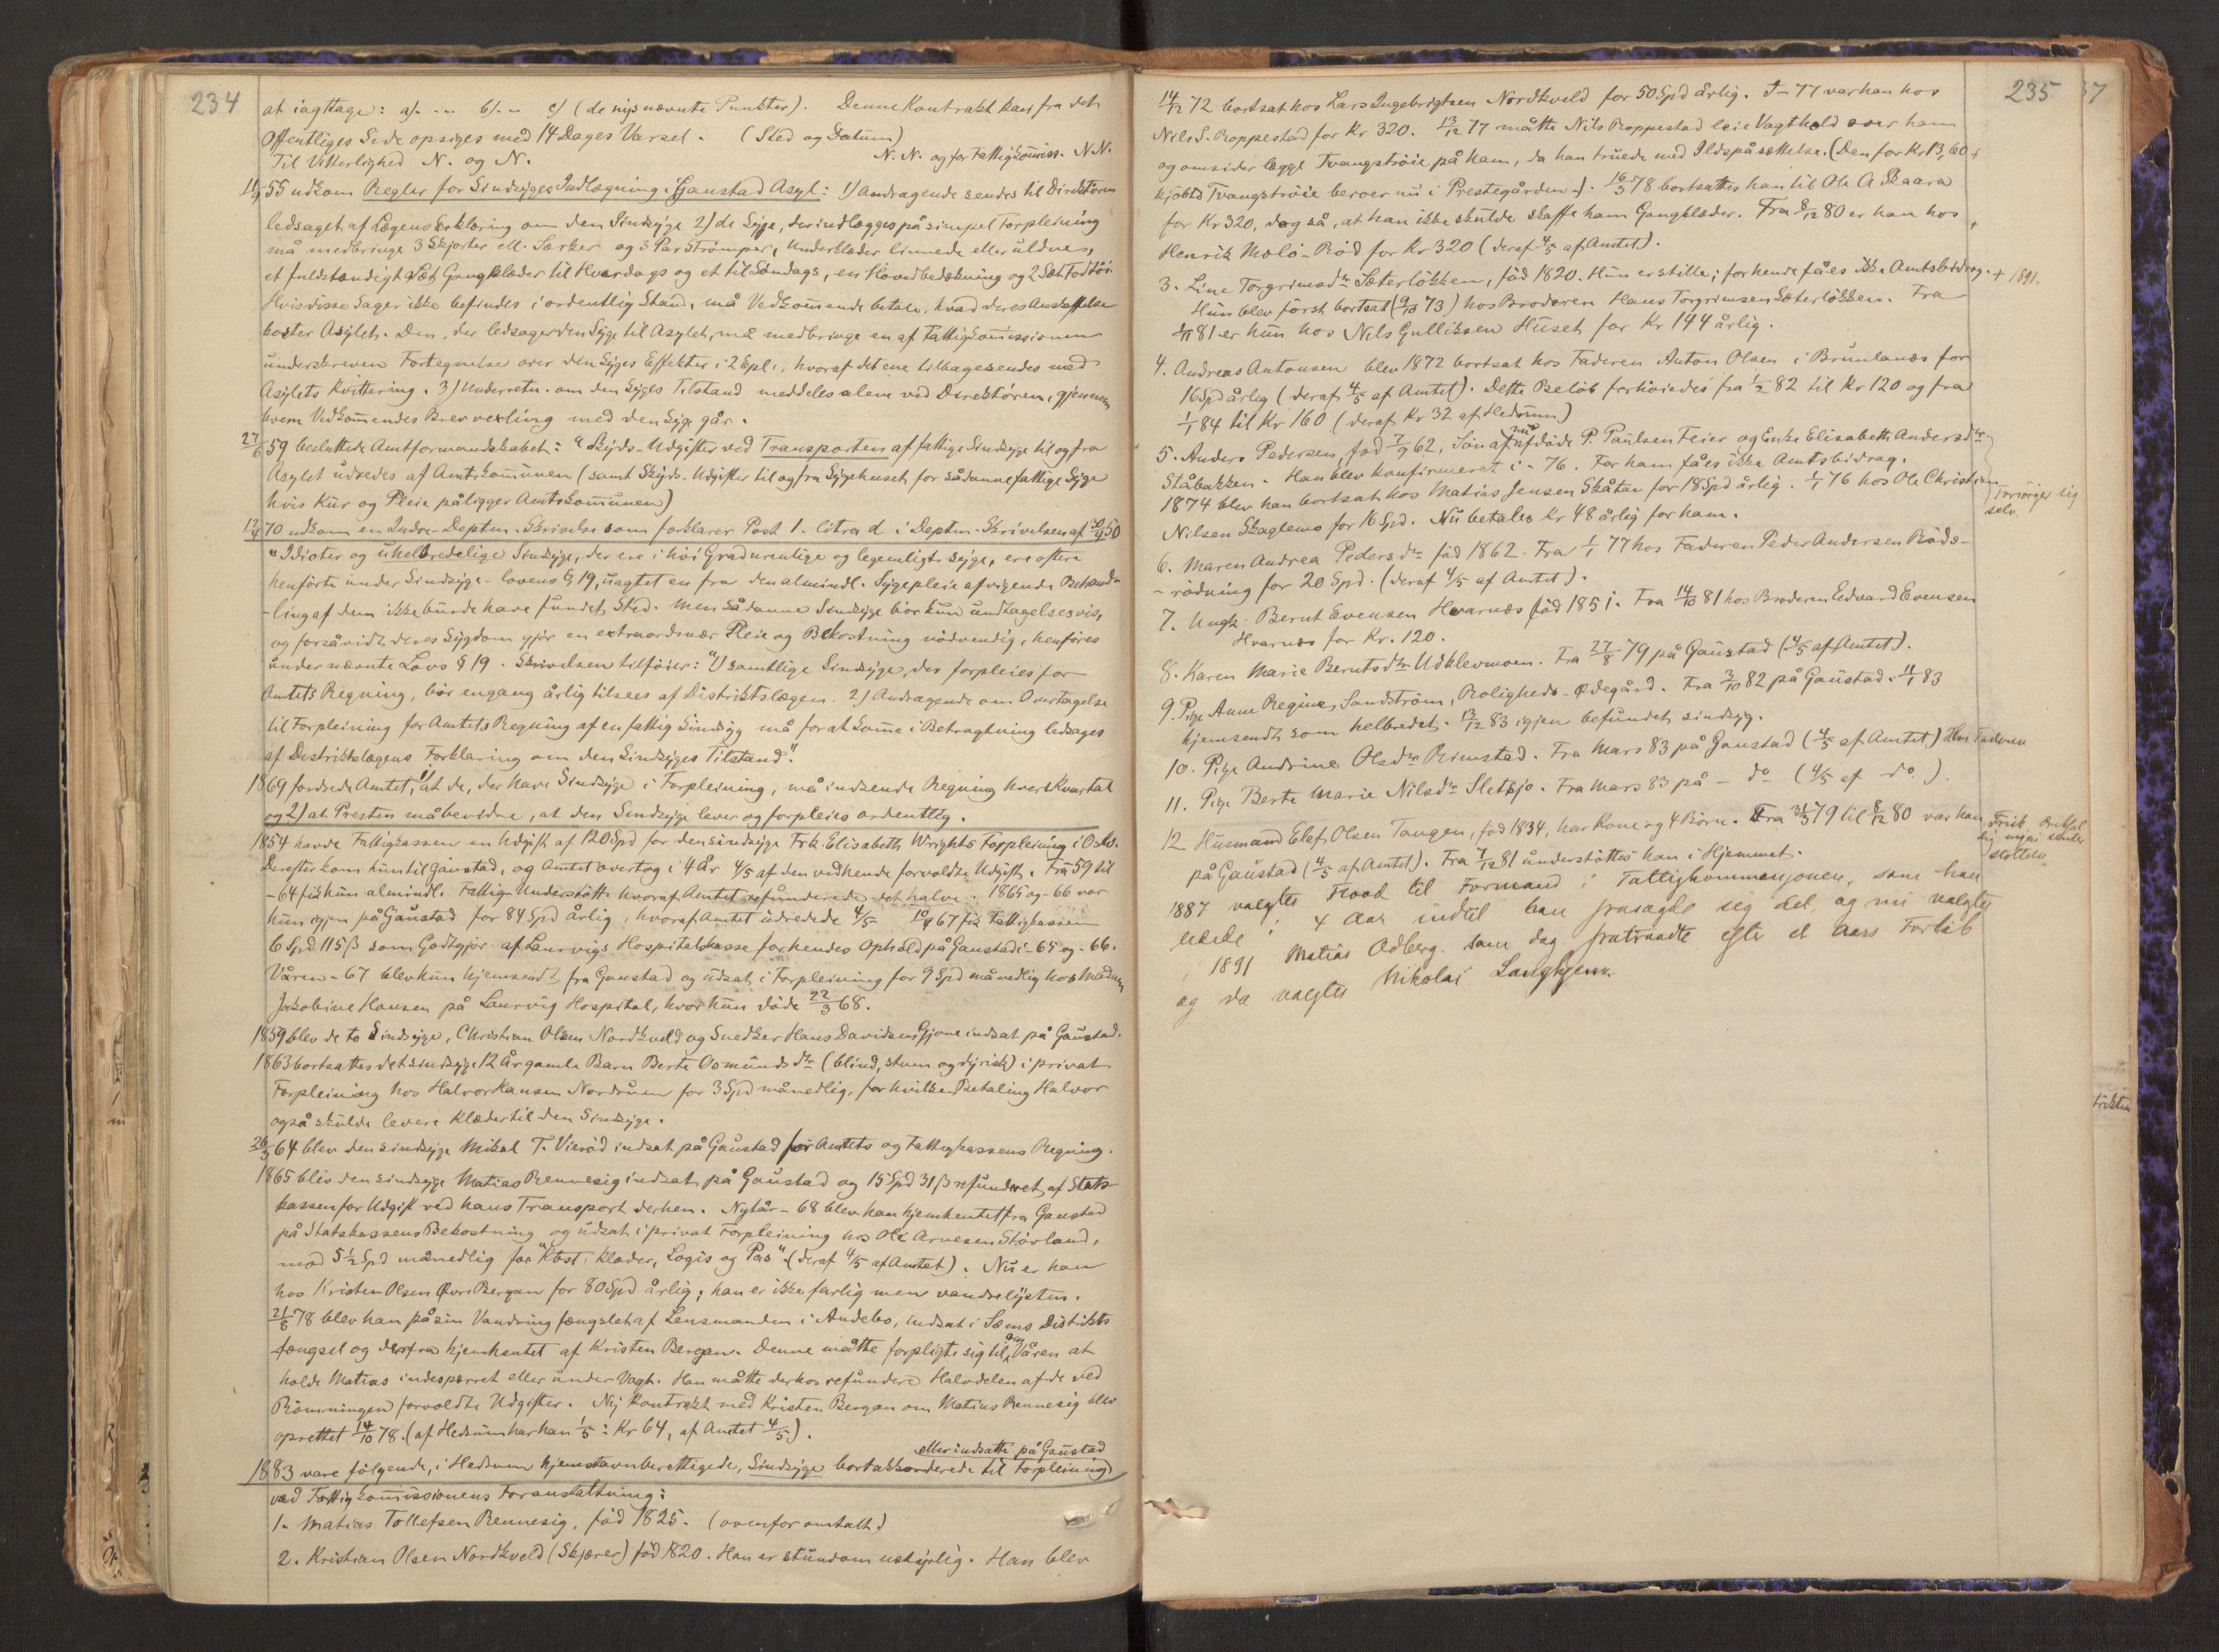 234
at iagttage: a/. ... b/. .. c/ (de nysnævnte Punkter). Denne Kontrakt kan fra det
Offentliges Side opsiges med 14 Dages Varsel. (Sted og Datum)
Til Vitterlighed N. og N. N. N. og for Fattigkommiss. N.N.
11/9 55 udkom Regler for Sindsyges Indlægning i Gaustad Asyl: 1) Andragende sendes til Direktøren
ledsaget af Lægens Erklæring om den Sindsyge 2) de Syge, der indlægges på simpel Forpleining
må medbringe 3 Skjorter ell. Særker og 3 Par Strømper, Underklæder linnede eller uldne,
et fuldstændigt Sæt Gangklæder til Hverdags og et til Søndags, en Hovedbedækning og 2 Sæt Fodtøi.
Hvis disse Sager ikke befindes i ordentlig Stand, må Vedkommende betale, hvad deres Anskaffelse
koster Asylet. Den, der ledsager den Syge til Asylet, må medbringe en af Fattigkommissionen
underskreven Fortegnelse over den Syges Effekter i 2 Expl., hvoraf det ene tilbagesendes med
Asylets Kvittering. 3) Underretn. om den Syges Tilstand meddeles alene ved Direktøren, gjennem
hvem Vedkommendes Brevvexling med den Syge går.
27/6 59 besluttede Amtformandskabet: "Skyds-Udgifter ved Transporten af fattige Sindsyge til og fra
Asylet udredes af Amtskommunen (samt Skyds-Udgifter til og fra Sygehuset for sådanne fattige Syge
hvis Kur og Pleie påligger Amtskommunen)
12/4 70 udkom en Indre-Deptm. Skrivelse som forklarer Post 1. litra d i Deptm. Skrivelsen af 30/11 50
"Idioter og uhelbredelige Sindsyge, der ere i høi Grad urenlige og legemligt syge, ere oftere
henførte under Sindsyge-lovens § 19, uagtet en fra den almindl. Sygepleie afvigende Behand-
-ling af dem ikke burde have fundet Sted. Men sådanne Sindsyge bør kun undtagelsesvis,
og forsåvidt deres Sygdom gjør en extraordinær Pleie og Bekostning nødvendig, henføres
under nævnte Lovs § 19. Skrivelsen tilføier: "1) samtlige Sindsyge, der forpleies for
Amtets Regning, bør engang årlig tilsees af Distriktslægen. 2) Andragende om Overtagelse
til Forpleining for Amtets Regning af en fattig Sindsyg må for at komme i Betragtning ledsages
af Distriktslægens Forklaring om den Sindsyges Tilstand".
1869 fordrede Amtet, 1) at de, der have Sindsyge i Forpleining, må indsende Regning hvert Kvartal
og 2) at Presten må bevidne, at den Sindsyge lever og forpleies ordentlig.
1854 havde Fattigkassen en Udgift af 120 Spd for den sindsyge Frk. Elisabeth Wrights Forpleining i Oslo.
Derefter kom hun til Gaustad, og Amtet overtog i 4 År 4/5 af den ved hende forvoldte Udgift. Fra 59 til
- 64 fik hun almindl. Fattig-Understøtt. hvoraf Amtet refunderede det halve. 1865 og - 66 var
hun igjen på Gaustad for 84 Spd årlig, hvoraf Amtet udredede 4/5 10/4 67 fik Fattigkassen
6 Spd 115 ß som Godtgjør. af Laurvigs Hospitalskasse for hendes Ophold på Gaustad i - 65 og - 66.
Våren - 67 blev hun hjemsendt fra Gaustad og udsat i Forpleining for 9 Spd månedlig hos Madam
Jakobine Hansen på Laurvig Hospital, hvor hun døde 22/3 68.
1859 blev de to Sindsyge, Christian Olsen Nordkveld og Snedker Hans Davidsen Gjone indsat på Gaustad.
1863 bortsattes det sindsyge 12 År gamle Barn Berte Osmunds dtr (blind, stum og dyrisk) i privat
Forpleining hos Halvor Hansen Nordrum for 3 Spd månedlig, for hvilken Betaling Halvor
også skulde levere Klæder til den Sindsyge.
26/3 64 blev den sindsyge Mikal T. Vierød indsat på Gaustad for Amtets og Fattigkassens Regning.
1865 blev den sindsyge Matias Rennesig indsat på Gaustad og 15 Spd 31 ß refunderet af Stats-
kassen for Udgift ved hans Transport derhen. Nytår - 68 blev han hjemhentet fra Gaustad
på Statskassens Bekostning og udsat i privat Forpleining hos Ole Arvesen Støvland,
mod 5 1/2 Spd månedlig for "Kost, Klæder, Logis og Pas" (deraf 4/5 af Amtet). Nu er han
hos Kristen Olsen Øvre Bergan for 80 Spd årlig; han er ikke farlig men vandrelysten.
21/8 78 blev han på sin Vandring fængslet af Lensmanden i Andebo, indsat i Sems Distrikts
fængsel og derfra hjemhentet af Kristen Bergan. Denne måtte forpligte sig til om Våren at
holde Matias indesperret eller under Vagt. Han måtte derhos refundere Halvdelen af de ved
Rømningen forvoldte Udgifter. Ny Kontrakt med Kristen Bergan om Matias Rennesig blev
oprettet 14/10 78. (af Hedrum har han 1/5: Kr 64, af Amtet 4/5).
eller indsatte på Gaustad
1883 vare følgende, i Hedrum hjemstavnberettigede, Sindsyge bortakkorderede til Forpleining
ved Fattigkommissionens Foranstaltning:
1. Matias Tollefsen Rennesig, fød 1825. (ovenfor omtalt)
2. Kristian Olsen Nordkveld (Skjærer) fød 1820. Han er stundom ustyrlig. Han blev
235
37
14/12 72 bortsat hos Lars Ingebrigtsen Nordkveld for 50 Spd årlig. I - 77 var han hos
Nils S. Roppestad for Kr 320. 13/12 77 måtte Nils Roppestad leie Vagthold over ham
og omsider lægge Tvangstrøie på ham, da han truede med Ildspåsættelse. (Den for Kr 13,60
kjøbte Tvangstrøie beroer nu i Prestegården). 16/3 78 bortsattes han til Ole A Skaara
for Kr 320, dog så, at han ikke skulde skaffe ham Gangklæder. Fra 8/12 80 er han hos
Henrik Molø-Rød for Kr 320 (deraf 4/5 af Amtet).
3. Line Torgrimsdtr Sæterløkken, fød 1820. Hun er stille; for hende fåes ikke Amtsbidrag. + 1891.
Hun blev først bortsat (9/10 73) hos Broderen Hans Torgrimsen Sæterløkken. Fra
1/1 81 er hun hos Nils Gulliksen Huset for Kr 144 årlig.
4. Andreas Antonsen blev 1872 bortsat hos Faderen Anton Olsen i Brunlanæs for
16 Spd årlig (deraf 4/5 af Amtet). Dette Beløb forhøiedes fra 1/2 82 til Kr 120 og fra
1/1 84 til Kr 160 (deraf Kr 32 af Hedrum)
5. Anders Pedersen, fød 7/9 62, Søn af nu afdøde P. Paulsen Feier og Enke Elisabeth Andersdtr
Ståbakken. Han blev konfirmeret i - 76. For ham fåes ikke Amtsbidrag.
1874 blev han bortsat hos Matias Jensen Skåtan for 18 Spd årlig. 1/1 76 hos Ole Christian
Nilsen Skaglemo for 16 Spd. Nu betales Kr 48 årlig for ham.
Forsørger sig
selv.
6. Maren Andrea Pedersdtr fød 1862. Fra 1/1 77 hos Faderen Peder Andersen Røds-
- rødning for 20 Spd. (deraf 4/5 af Amtet).
7. Ungk. Bernt Evensen Hvarnæs fød 1851. Fra 14/10 81 hos Broderen Edvard Evensen
Hvarnæs for Kr. 120.
8. Karen Marie Berntsdtr Udklevmoen. Fra 27/8 79 på Gaustad (4/5 af Amtet).
9. Pige Anne Regine Sandstrøm, Roligheds-Ødegård. Fra 3/10 82 på Gaustad. 11/1 83
hjemsendt som helbredet. 13/12 83 igjen befundet sindsyg.
10. Pige Andrine Olsdtr Rimstad. Fra Mars 83 på Gaustad (4/5 af Amtet) Hos Faderen
11. Pige Berte Marie Nilsdtr Sletsjø. Fra Mars 83 på - do (4/5 af do).
12 Husmand Elef Olsen Tangen, fød 1834, har Kone og 4 Børn. Fra 31/5 79 til 8/12 80 var han
på Gaustad (4/5 af Amtet). Fra 7/12 81 understøttes han i Hjemmet.
Frisk
1887 valgtes Hood til Formand i Fattigkommisjonen, som han
ledede i 4 Aar indtil han frasagde sig det, og nu valgtes
1891 Matias Odberg. som dog fratraadte efter et Aars Forløb
og da valgtes Nikolai Langhjem.